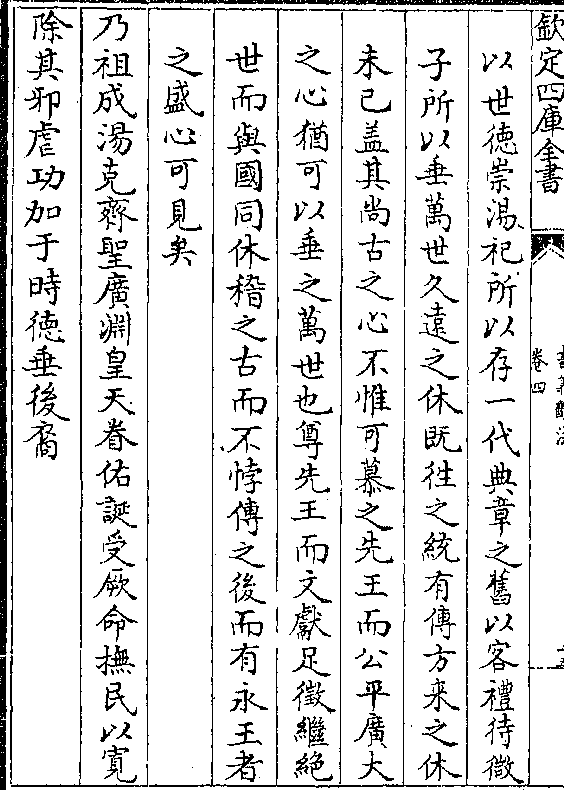 欽定四庫全書
卷四
以世德崇湯祀所以存一代典章之舊以客禮待微
子所以垂萬世久遠之休既徃之統有傳方来之休
未已盖其尚古之心不惟可慕之先王而公平廣大
之心猶可以垂之萬世也尊先王而文獻足徵繼絶
世而與國同休稽之古而不悖傳之後而有永王者
之盛心可見矣
乃祖成湯克齊聖廣淵皇天眷佑誕受厥命撫民以寛
除其邪虐功加于時德垂後裔